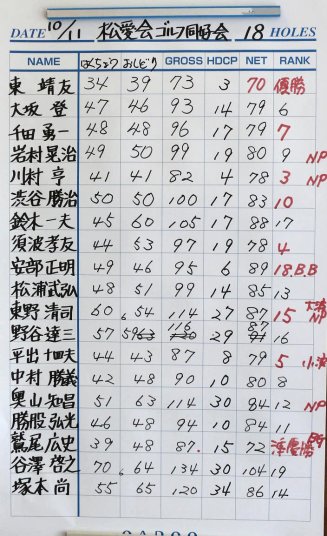 DATE 10/11 松愛会ゴルフ同好会 18 HOLES
NAME はくちょう おしどり GROSS HDCP NET RANK
東 靖友 34 39 73 3 70 優勝
大坂 登 47 46 93 14 79 6
千田 勇一 48 48 96 17 79 7
岩村晃治 49 50 99 19 80 9 NP
川村 亨 41 41 82 4 78 3 NP
渋谷勝治 50 50 100 17 83 10
鈴木一夫 45 60 105 17 88 17
須波孝友 44 53 97 19 78 4
安部正明 49 46 95 6 89 18.B.B
松浦武弘 48 51 99 14 85 13
東野清司 60 54 114 27 87 15 NP
野谷達三 57 59 116 29 87 16
平出十四夫 44 43 87 8 79 5
中村勝義 42 48 90 10 80 8
奥山知昌 51 63 114 30 84 12 NP
勝股弘光 46 48 94 10 84 11
鷲尾広史 39 48 87 15 72 準優勝
谷澤啓之 70 64 134 30 104 19
塚本尚 55 65 120 34 86 14